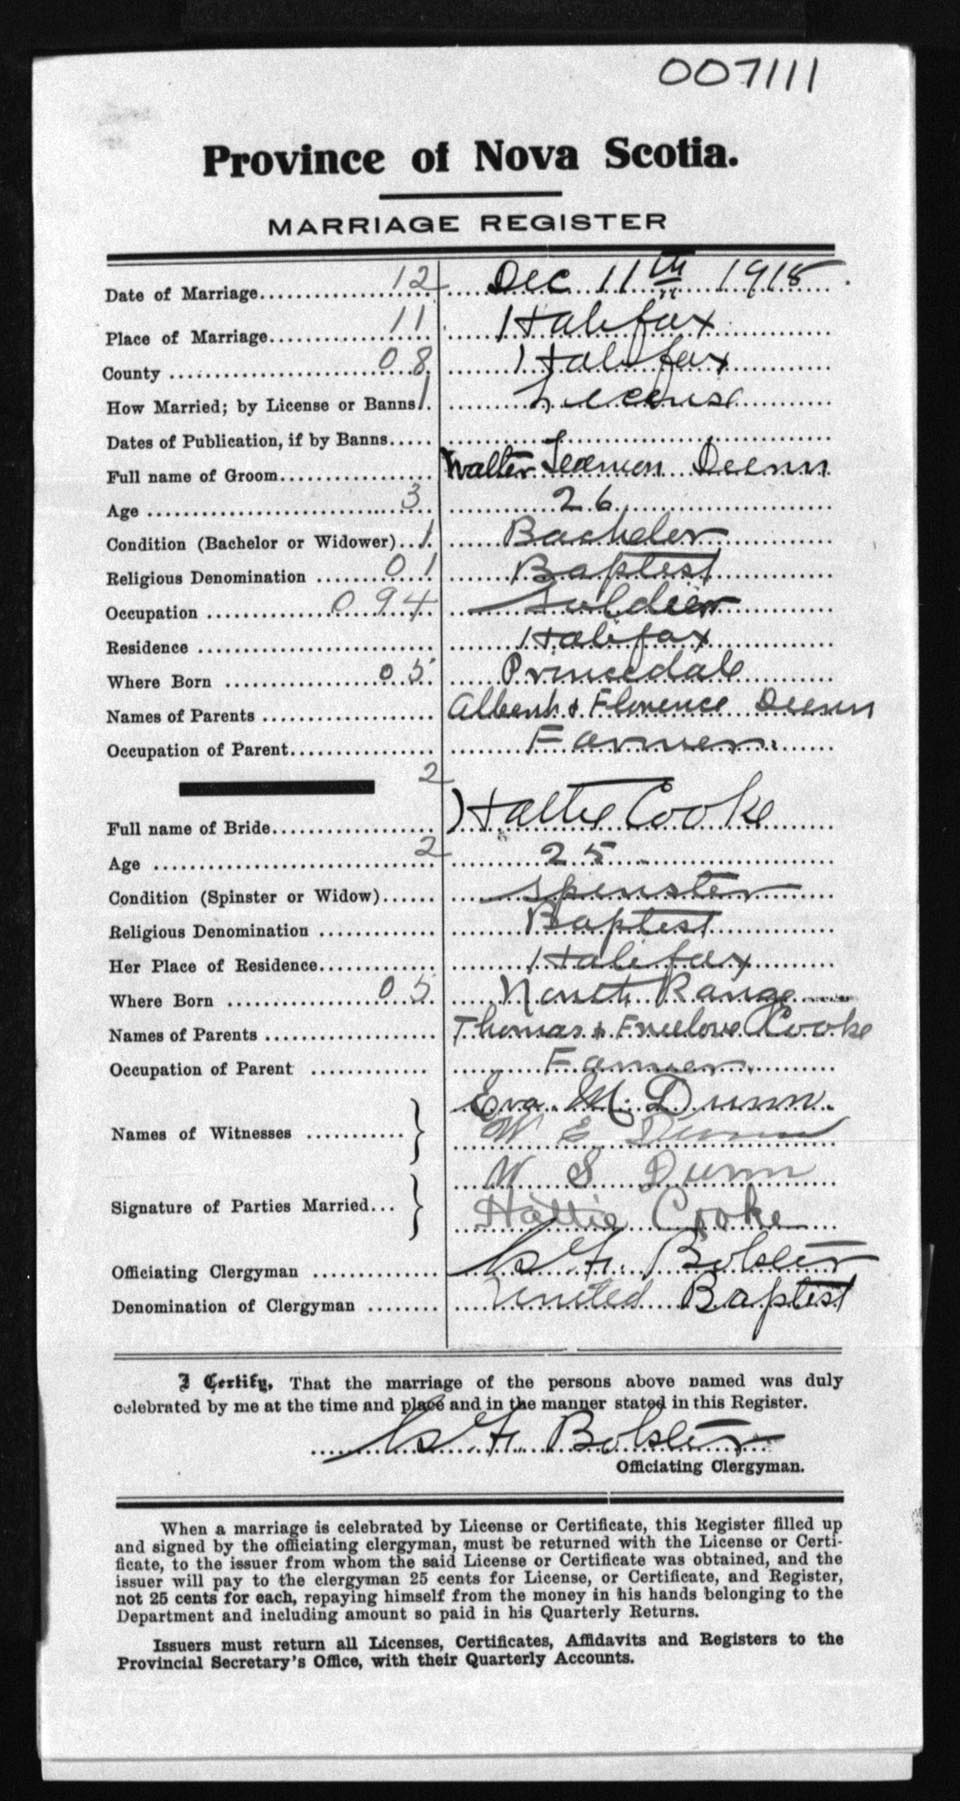 007111
Province of Nova Scotia.
MARRIAGE REGISTER
Date of Marriage 12 Dec 11th 1918
Place of Marriage 11 Halifax
County 08 Halifax
How Married; by License or Banns 1 License
Dates of Publication, if by Banns
Full name of Groom Walter
Age 3 26
Condition (Bachelor or Widower) 1 Bachelor
Religious Denomination 01 Baptist
Occupation 094 Soldier
Residence Halifax
Where Born 05 Princedale
Names of Parents Albert & Florence
Occupation of Parent Farmer
2
Full name of Bride Hattie Cooke
Age 2 25
Condition (Spinster or Widow) Spinster
Religious Denomination Baptist
Her Place of Residence Halifax
Where Born 05 North Range
Names of Parents Thomas & Freelove Cooke
Occupation of Parent Farmer
Names of Witnesses Eva M. Dunn.
W E Dunn
Signature of Parties Married W S Dunn
Hattie Cooke
Officiating Clergyman Bolster
Denomination of Clergyman United Baptist
I Certify, That the marriage of the persons above named was duly
celebrated by me at the time and place and in the manner stated in this Register.
Bolster
Officiating Clergyman.
When a marriage is celebrated by License or Certificate, this Register filled up
and signed by the officiating clergyman, must be returned with the License or Certi-
ficate, to the issuer from whom the said License or Certificate was obtained, and the
issuer will pay to the clergyman 25 cents for License, or Certificate, and Register,
not 25 cents for each, repaying himself from the money in his hands belonging to the
Department and including amount so paid in his Quarterly Returns.
Issuers must return all Licenses, Certificates, Affidavits and Registers to the
Provincial Secretary's Office, with their Quarterly Accounts.